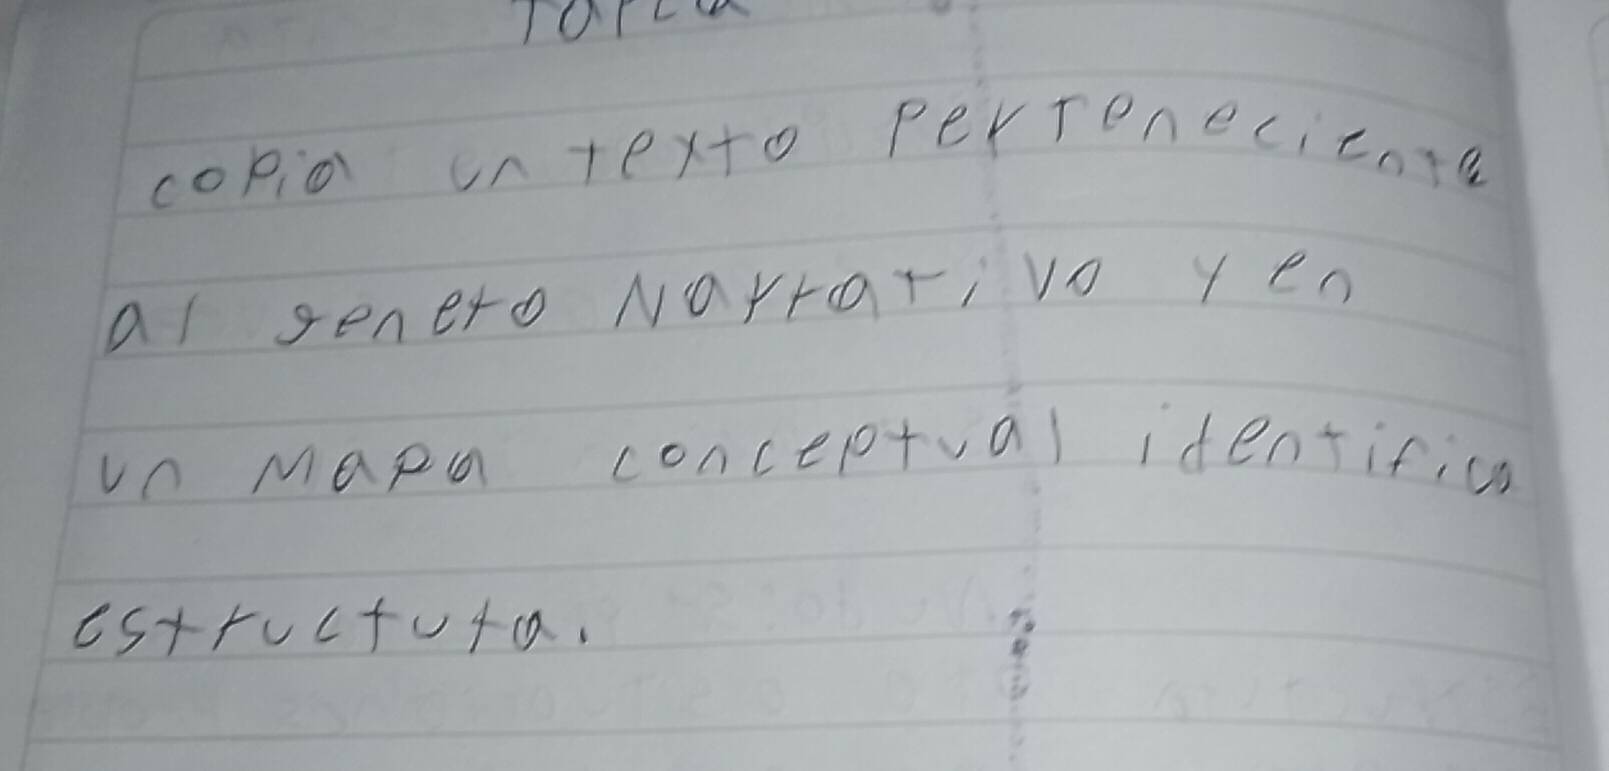 copia un texto perteneciente
al genero Narrativo y en
un Mapa conceptual identifica
estructura.